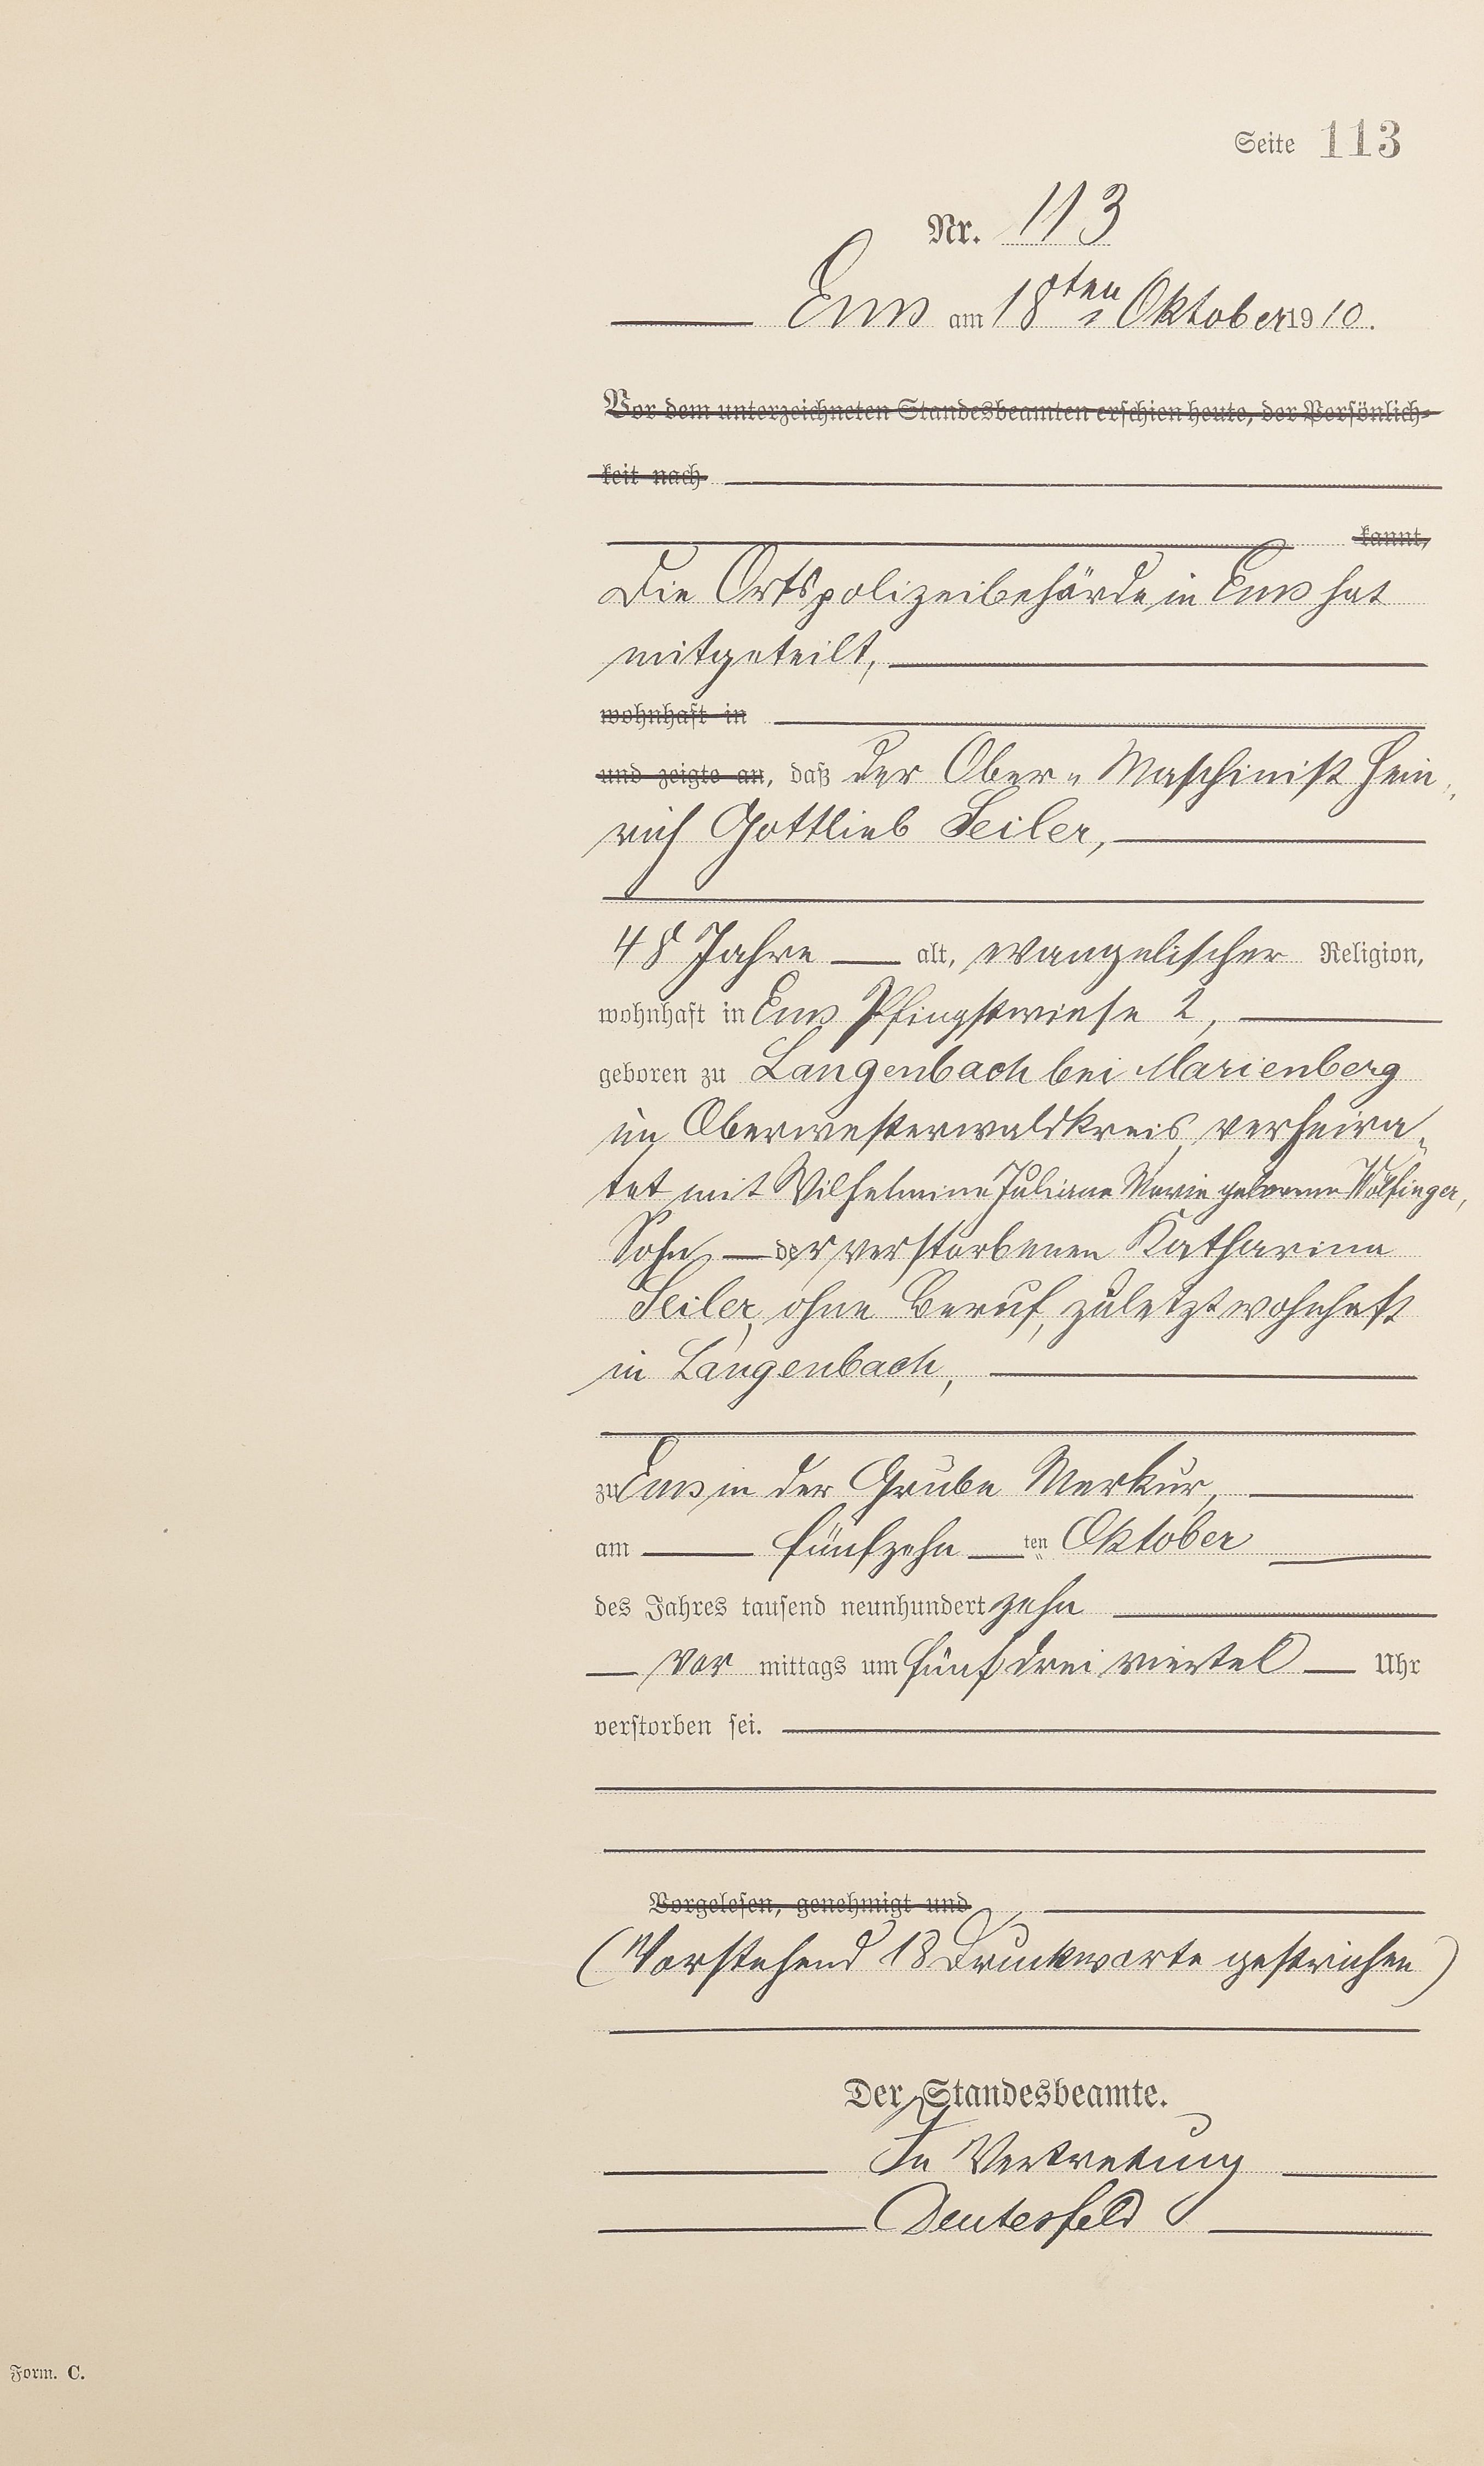 Seite 113
Nr. 113
Ems am 18ten Oktober 1910.
Vor dem unterzeichneten Standesbeamten erschien heute, der Persönlich-
keit nach
kannt,
Die Ortspolizeibehörde in Ems hat
mitgeteilt,
wohnhaft in
und zeigte an, daß der Ober-Maschinist Hein-
rich Gottlieb Seiler,
48 Jahre alt, evangelischer Religion,
wohnhaft in Ems Pfingstwiese 2,
geboren zu Langenbach bei Marienberg
im Oberwesterwaldkreis, verheira-
tet mit Wilhelmine Juliane Marie geborene Wölfinger,
Sohn der verstorbenen Katharina
Seiler, ohne Beruf, zuletzt wohnhaft
in Langenbach,
zu Ems in der Grube Merkur,
am fünfzehnten Oktober
des Jahres tausend neunhundert zehn
Vor mittags um fünf drei viertel Uhr
verstorben sei.
Vorgelesen, genehmigt und
(Vorstehend 18 Druckworte gestrichen)
Der Standesbeamte.
In Vertretung
Deutesfeld
Form. C.